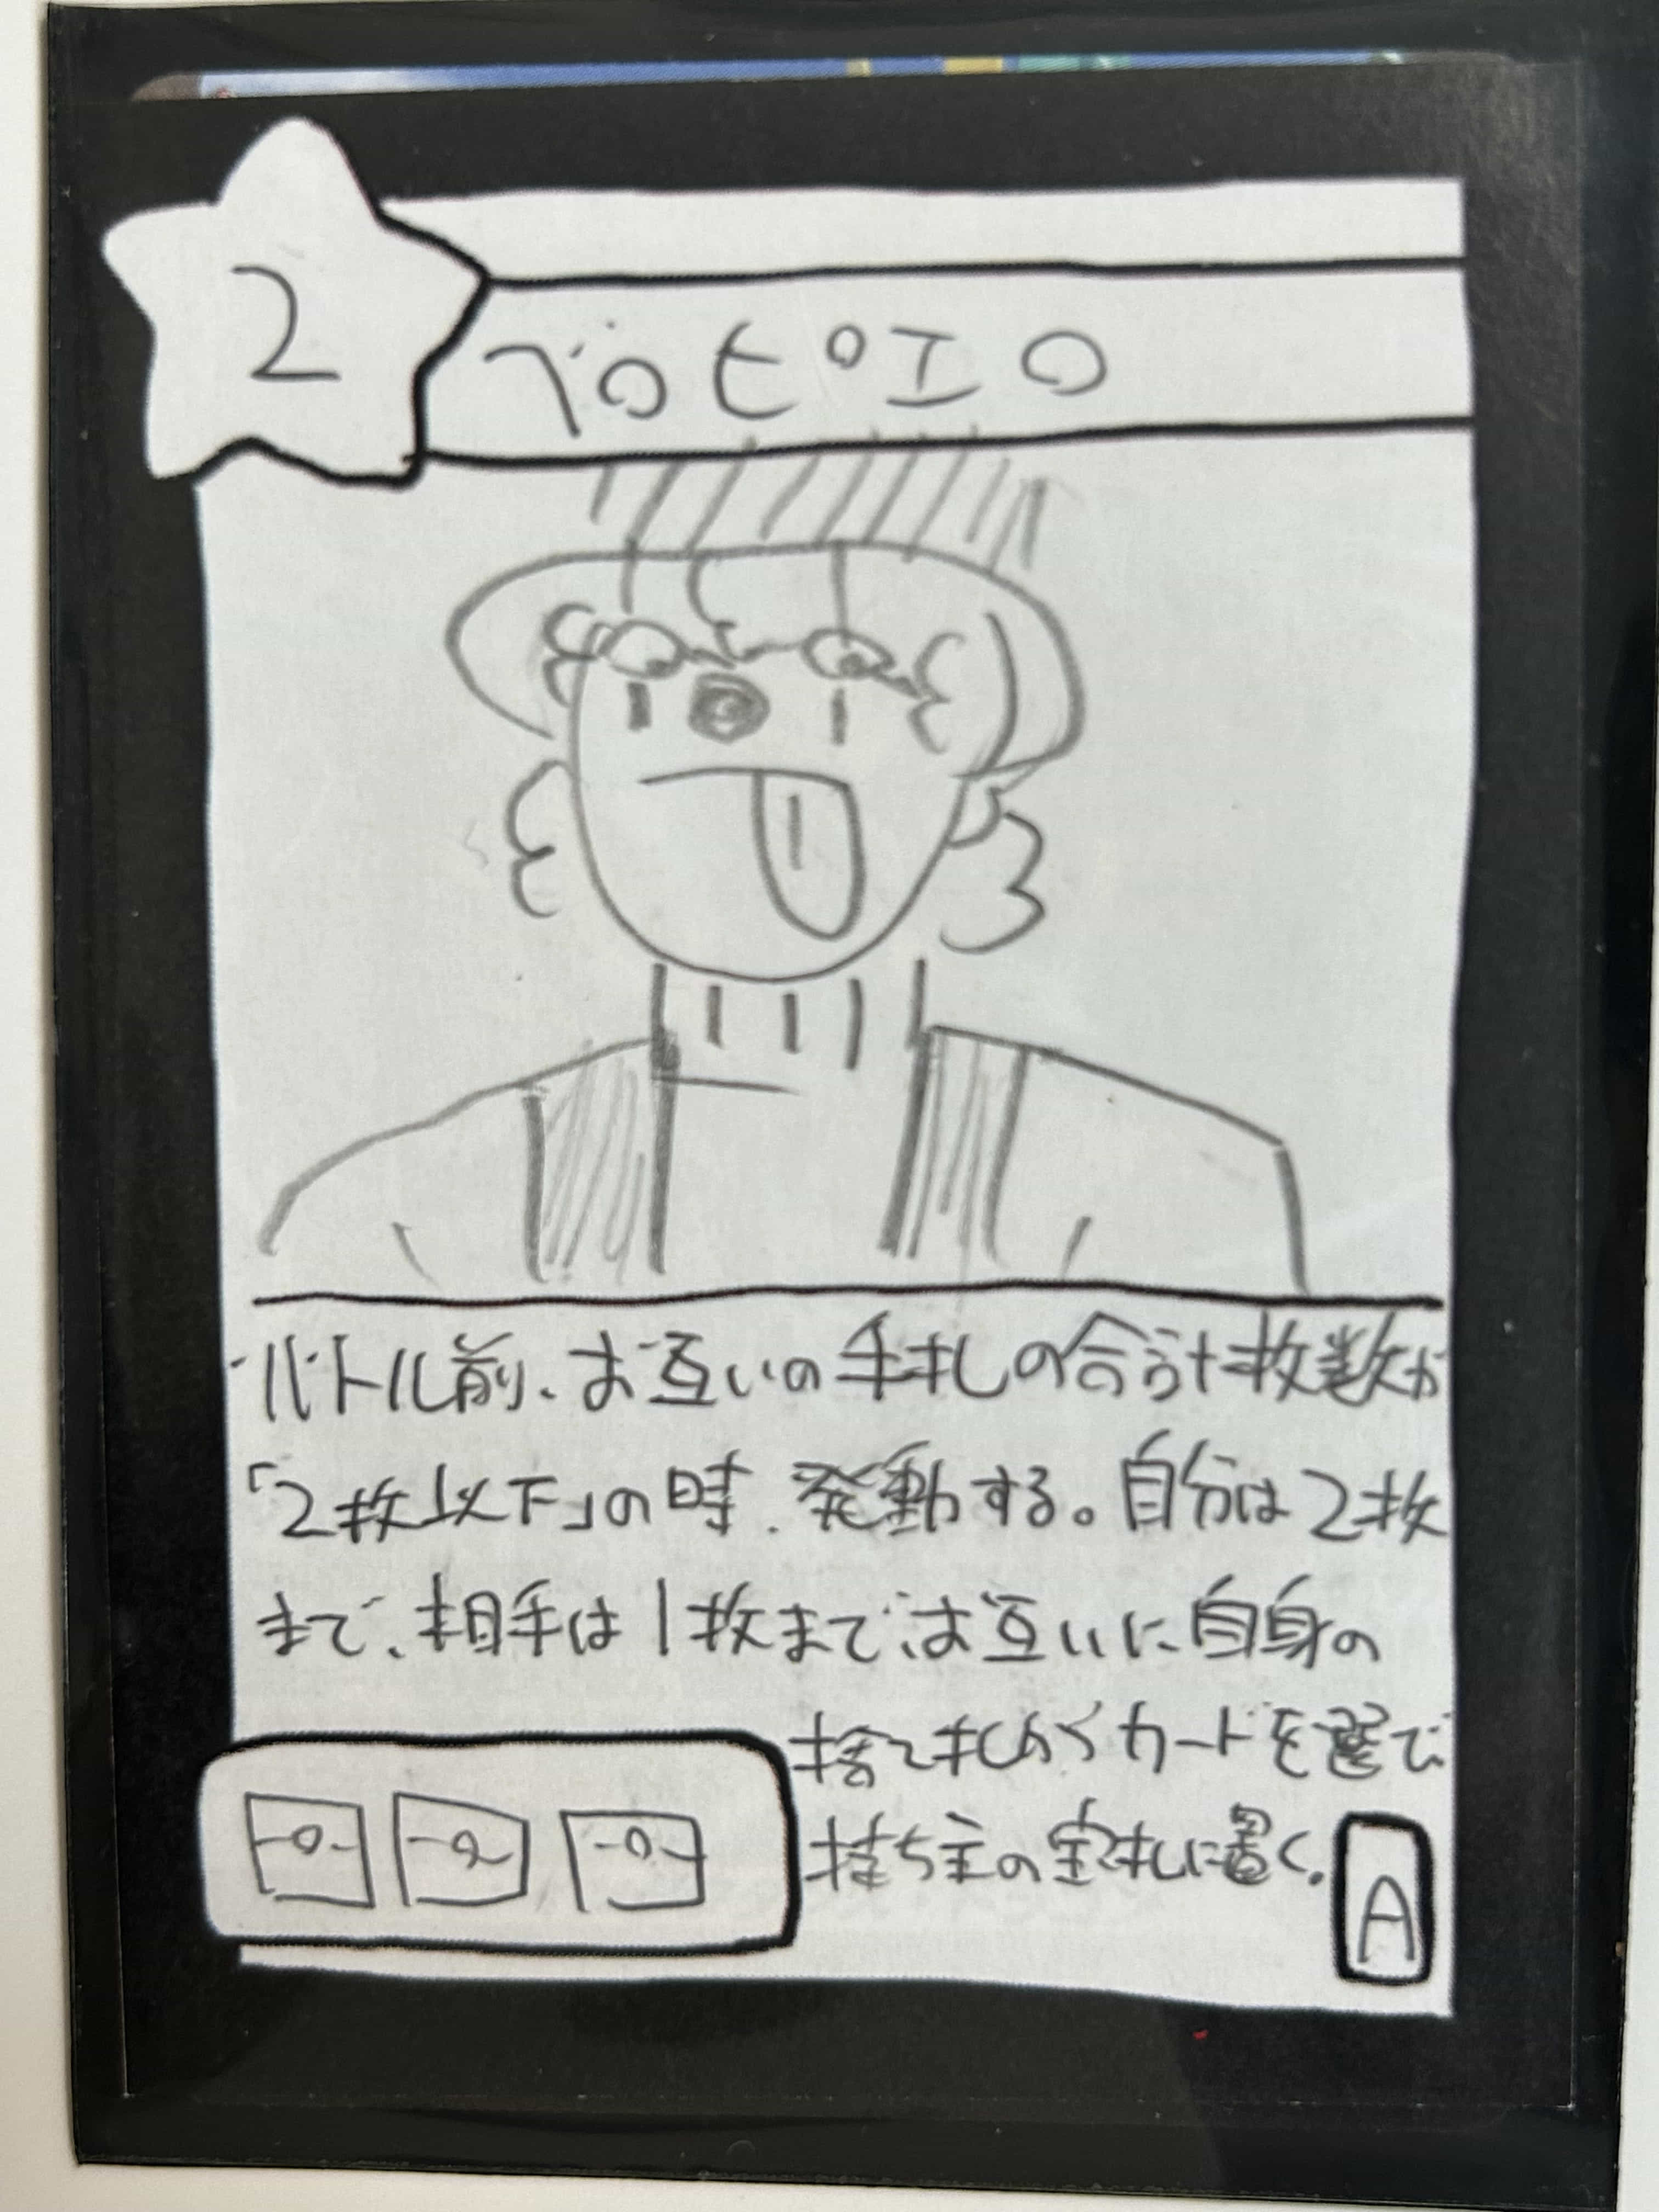 2
ベロピエロ
バトル前、お互いの手札の合計枚数が
「2枚以下」の時、発動する。自分は2枚
まで、相手は1枚まで、お互いに自身の
捨て札からカードを選で
持ち主の宝札に置く。
A